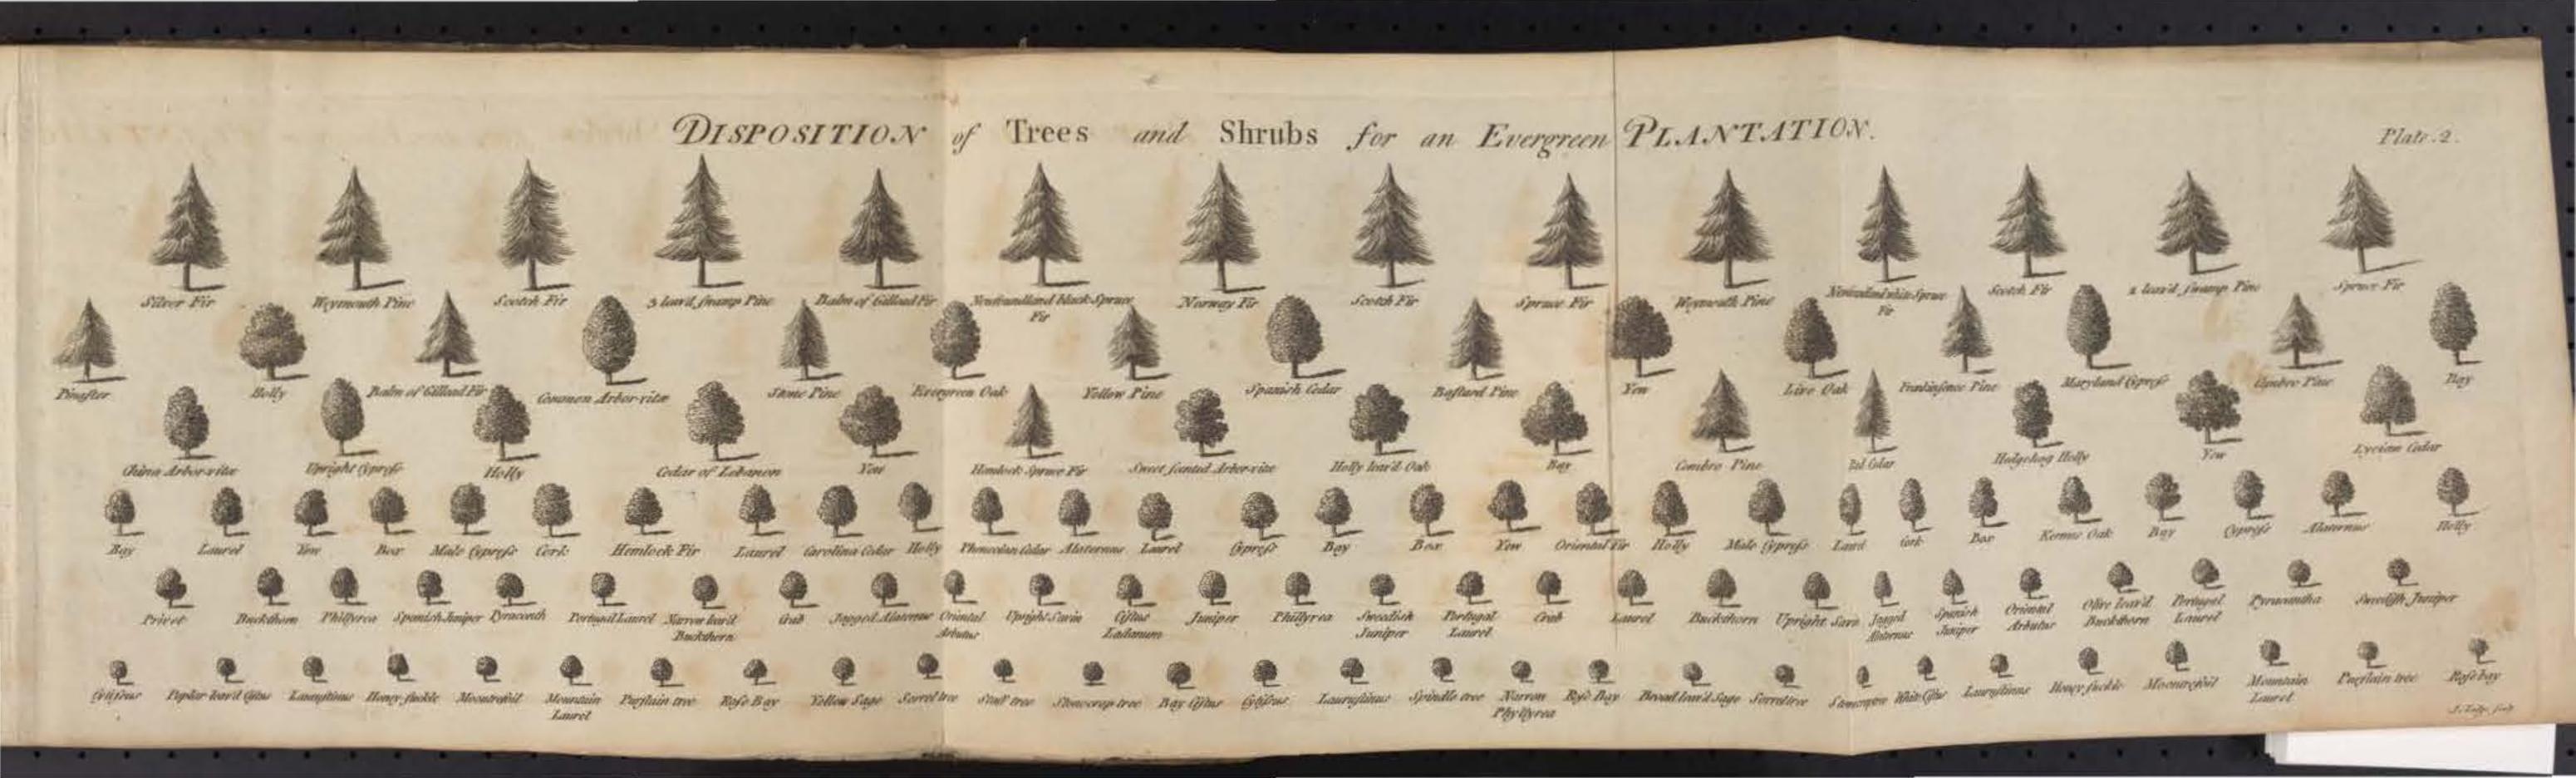 DISPOSITION of Trees and Shrubs for an Evergreen PLANTATION.
Plate.2.
Silver Fir Weymouth Pine Scotch Fir 3 leav'd swamp Pine Balm of Gillead Fir Newfoundland black Spruce Fir Norway Fir Scotch Fir Spruce Fir Weymouth Pine Newfoundland white Spruce Fir Scotch Fir 2 leav'd swamp Pine Spruce Fir
Pinaster Holly Balm of Gillead Fir Common Arbor-vitæ Stone Pine Evergreen Oak Yellow Pine Spanish Cedar Bastard Pine Yew Live Oak Frankinsence Pine Maryland Cypress Cembro Pine Bay
China Arbor-vitæ Upright Cypress Holly Cedar of Lebanon Yew Hemlock Spruce Fir Sweet scented Arbor-vitæ Holly leav'd Oak Bay Cembro Pine Red Cedar Hedgehog Holly Yew Lycian Cedar
Bay Laurel Yew Box Male Cypress Cork Hemlock Fir Laurel Carolina Cedar Holly Phenecian Cedar Alaternus Laurel Cypress Bay Box Yew Oriental Fir Holly Male Cypress Laurel Cork Box Kermes Oak Bay Cypress Alaternus Holly
Privet Buckthorn Phillyrea Spanish Juniper Pyracanth Portugal Laurel Narrow leav'd Buckthorn Crab Jagged Alaternus Oriental Arbutus Upright Savin Cistus Ladanum Juniper Phillyrea Swedish Juniper Portugal Laurel Crab Laurel Buckthorn Upright Savn Jagged Alaternus Spanish Juniper Oriental Arbutus Olive leav'd Buckthorn Portugal Laurel Pyracantha Swedish Juniper
Cytisus Poplar leav'd Cistus Laurustinus Honey suckle Moontrefoil Mountain Laurel Purslain tree Rose Bay Yellow Sage Sorrel tree Stonecrop tree Bay Cistus Cytisus Laurustinus Spindle tree Narrow Phyllyrea Rose Bay Broad leav'd Sage Sorrel tree Stonecrop White Cistus Laurustinus Honey suckle Moontrefoil Mountain Laurel Purslain tree Rose bay